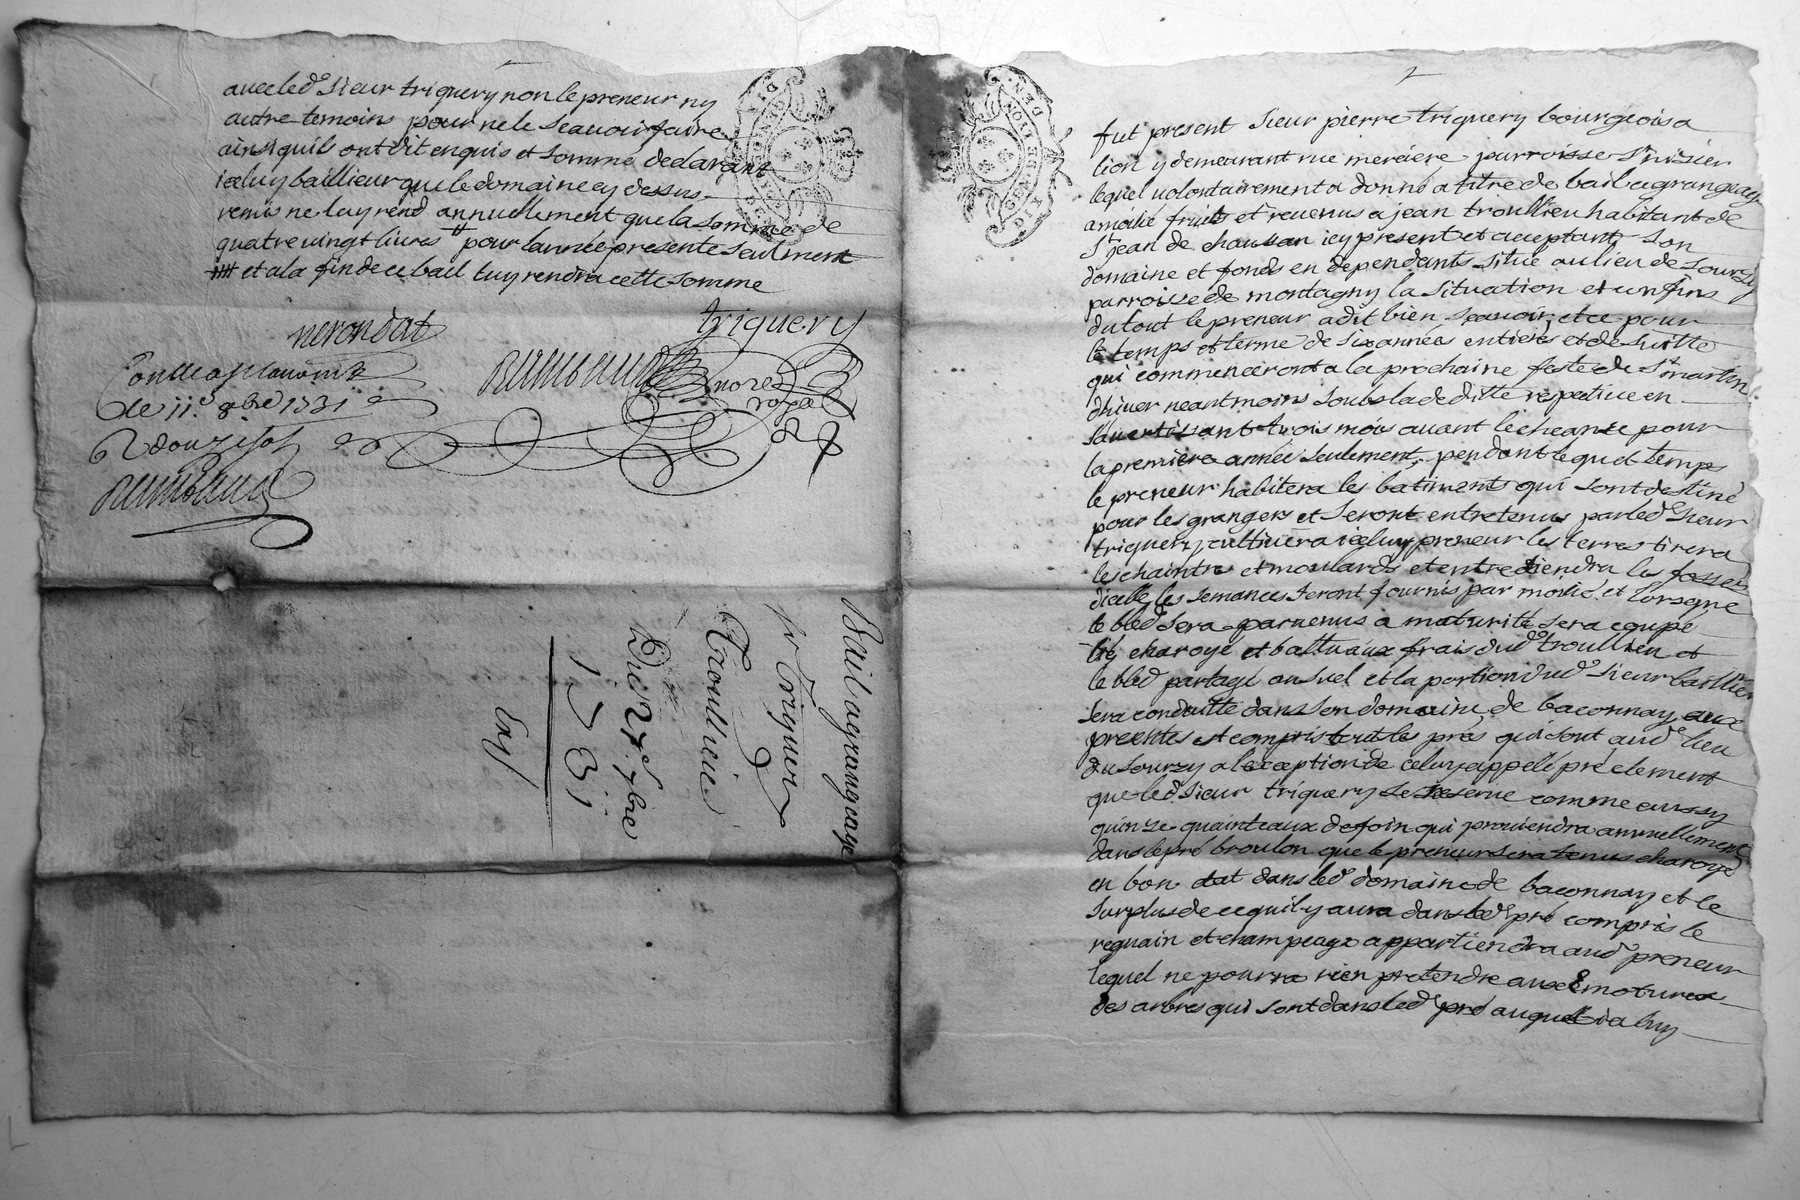 avec led. sieur triquery non le preneur ny
autre temoins pour ne le scavoir faire
ainsi quils ont dit enquis et sommé declarant
iceluy baillieur que le domaine cy dessus
remis ne luy rend annuellement que la somme de
quatre vingt livres pour lannée presente seulment
et a la fin de ce bail luy rendra cette somme
nerondat
triquery
Con
de 11e 8bre 1731
R douze sols
Bail a grangeage
sr Triquery
Troullieu
Du 27e 7bre
1731
fut present sieur pierre triquery bourgeois a
lion y demeurant rue merciere parroisse st nisier
lequel volontairement a donné a titre de bail a grangeage
a moitié fruits et revenus a jean troullieu habitant de
st jean de chaussan icy present et acceptant son
domaine et fonds en dependants situé au lieu de sourzy
parroisse de montagny la situation et confins
du tout le preneur a dit bien scavoir, et ce pour
le temps et terme de six années entieres et de suitte
qui commenceront a la prochaine feste de st martin
dhiver neantmoins soubs la deditte respective en
savertissant trois mois avant lecheance pour
la premiere année seulement, pendant lequel temps
le preneur habitera les batiments qui sont destiné
pour les grangers et seront entretenus par led. sieur
triquery, cultivera iceluy preneur les terres tirera
les chaintre et moulards et entretiendra les fossez
dicelle, les semances seront fournis par moitié et lorsque
le bled sera parvenus a maturité sera coupé
lié charoyé et battu aux frais dud. troullieu et
le bled partagé au suel et la portion dud. sieur baillieur
sera conduitte dans son domaine de baconnay, aux
presentes est compris touts les prés qui sont aud. lieu
du sourzy a lexception de celuy appelé pré clement
que led. sieur triquery se reserve comme aussy
quinze quainteaux de foin qui proviendra annuellement
dans le pré broulon que le preneur sera tenus charoyé
en bon etat dans led. domaine de baconnay et le
surplus de ce quil y aura dans led. pré compris le
reguain et champeage appartiendra aud. preneur
lequel ne pourra rien pretendre aux emotures
des arbres qui sont dans led. pré auquel iceluy